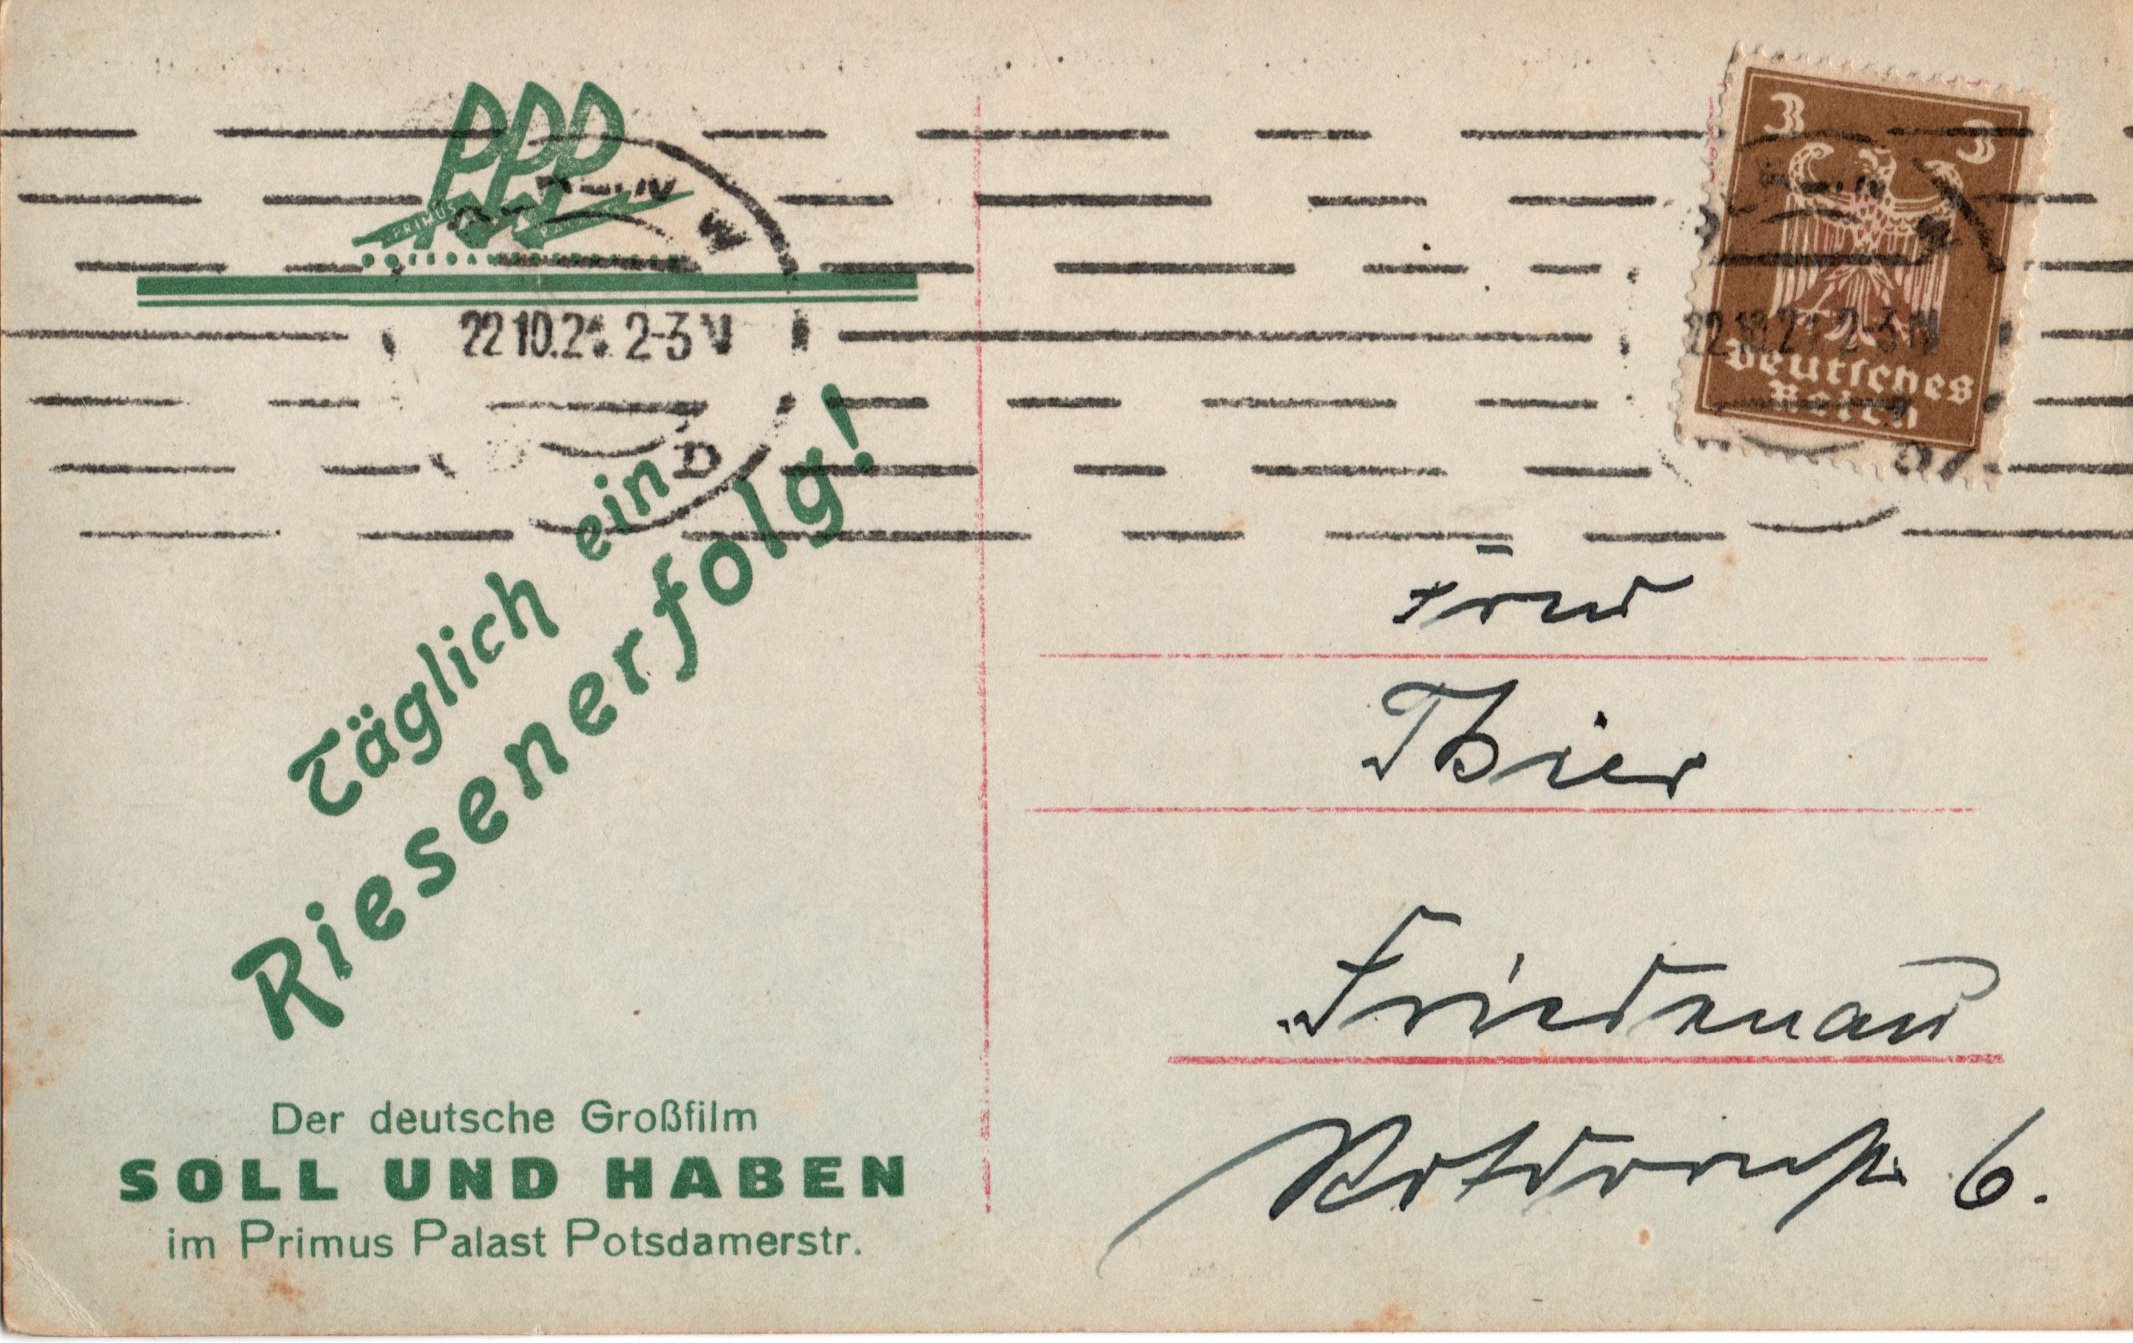 PPP
PRIMUS PALAST
POTSDAMERSTRASSE
BERLIN W
22 10.2 2-3 N
3 3
Deutsches
Reich
22.10.2 2-3 N
Täglich ein
Riesenerfolg!
Der deutsche Großfilm
SOLL UND HABEN
im Primus Palast Potsdamerstr.
Thier
Friedenau
6.